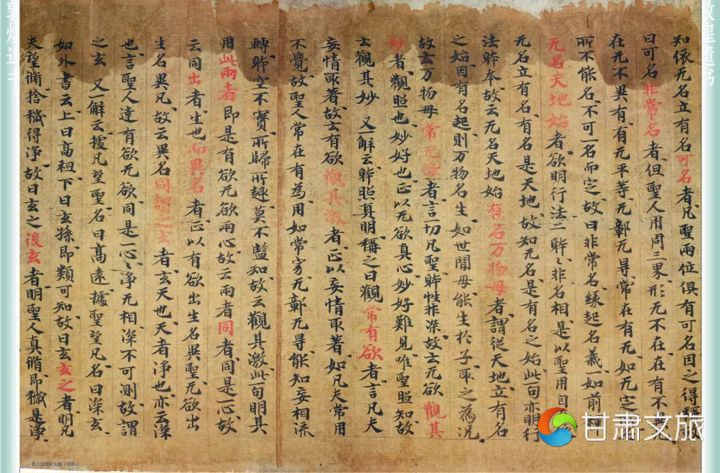 知依无名立有名可名者凡聖兩位俱有可名因之得
曰可名非常名者但聖人用周三界形无不在在有不
在无不異有有无平等无彰无㝵常在有无如无
所不能名不可一名而定故曰非常名緣起名義如前
无名天地始者欲明行法二躰躰非名相是以聖用自
无名立有名有名是天地故知无名是有名之始此一句亦明行
法躰本故云无名天地始有名万物母者謂從天地立有名
之始因有名起則万物名生如世間母能生於子取之為况
故云万物母常无欲者言一切凡聖躰性非深故云无欲觀其
妙者觀照也妙好也正以无欲真心妙好難見唯聖照知故
云觀其妙又一解云躰照真明稱之曰觀常有欲者言凡夫
妄情取著故云有欲觀其徼者正以妄情取著如凡夫常用
不覺故聖人常在有為用如常方无彰无㝵能知妄相流
轉躰空不實所歸所趣莫不監知故云觀其徼此一句明其
用此兩者即是有欲无欲兩心故云兩者同者同是一心故
云同出者生也而異名者正以有欲出生名異聖无欲出
生名異凡故云異名同謂之玄者玄天也天者淨也亦云深
也言聖人達有欲无欲同是一心淨无相深不可測故謂
之玄又一解云據凡望聖名曰高遠據聖望凡名曰深玄
如外書云上曰高祖下曰玄孫即類可知故曰玄玄之者明凡
夫望脩捨穢得淨故曰玄之復玄者明聖人真脩即穢是淨
甘肃文旅